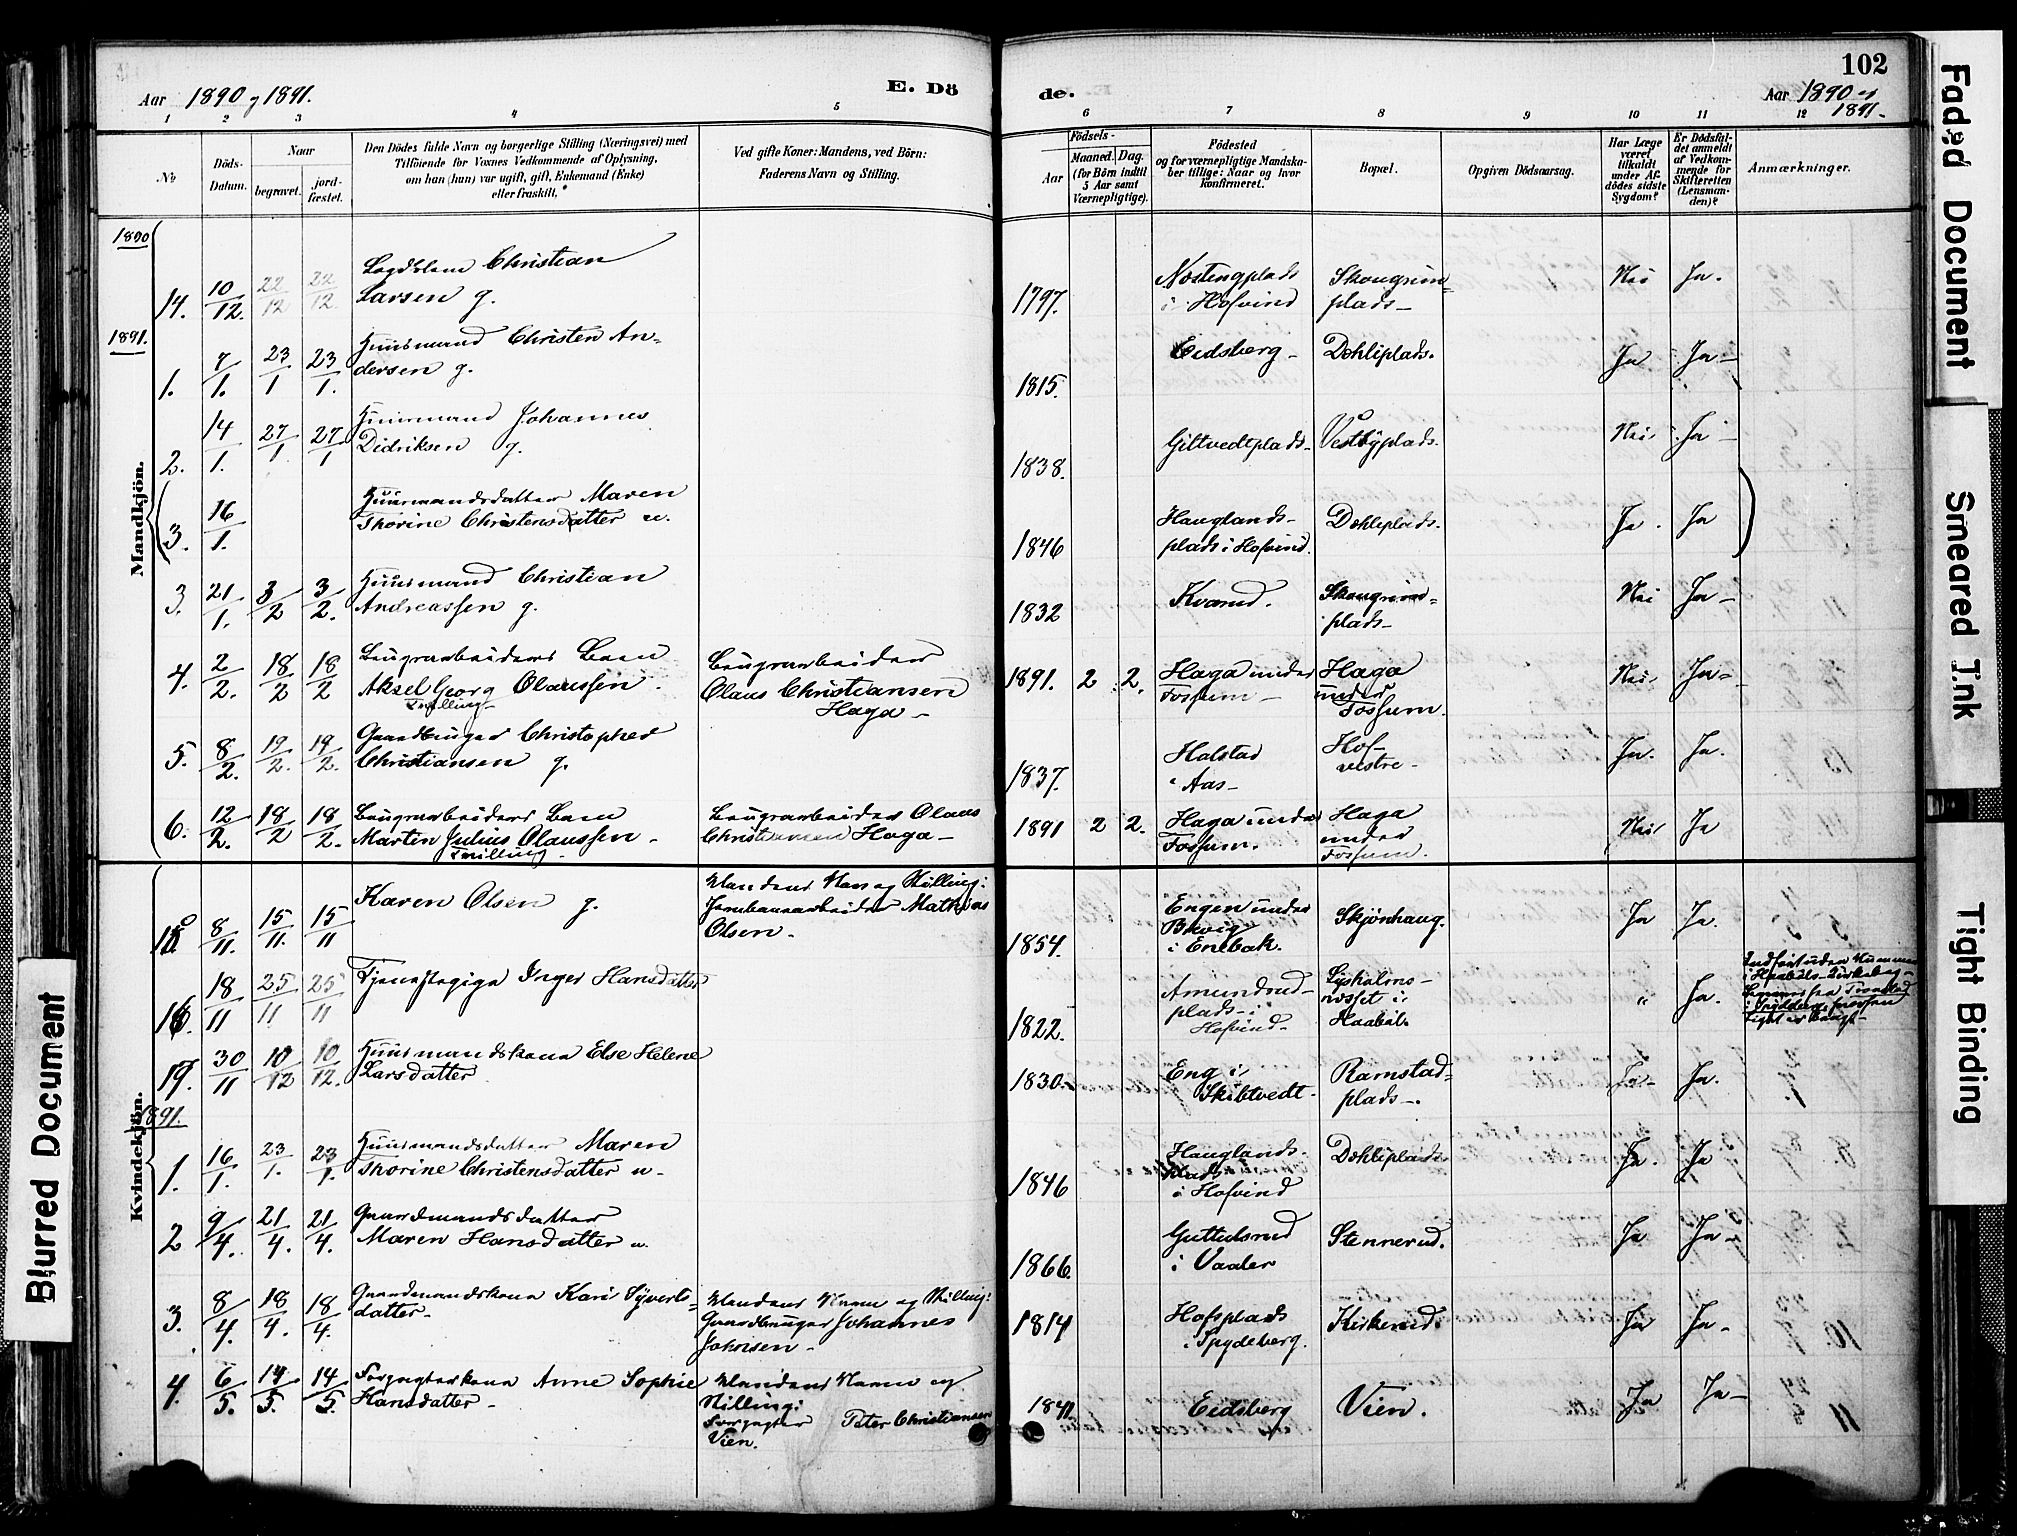 102
Aar 1890 og 1891.
E. Dö
de.
Aar 1890 og
1891.
1 2 3 4 5 6 7 8 9 10 11 12
No
Döds-
Datum.
Naar
begravet.
jord-
fæstet.
Den Dödes fulde Navn og borgerlige Stilling (Næringsvei) med
Tilföiende for Voxnes Vedkommende af Oplysning,
om han (hun) var ugift, gift, Enkemand (Enke)
eller fraskilt.*
Ved gifte Koner: Mandens, ved Börn:
Faderens Navn og Stilling.
Födsels-
Aar
Maaned. Dag.
(for Börn indtil
5 Aar samt
Værnepligtige).
Födested
og for værnepligtige Mandska-
ber tillige: Naar og hvor
konfirmeret.
Bopæl.
Opgiven Dödsaarsag.
Har Læge
været
tilkaldt
under Af-
dödes sidste
Sygdom?
Er Dödsfal-
det anmeldt
af Vedkom-
mende for
Skifteretten
(Lensman-
den)?
Anmærkninger.
Mandkjön.
1890
14. 10/12. 22/12 22/12. Christian
Larsen g.
1797. i Hofvind
plads Nei Ja.
1891.
1. 7/1. 23/1 23/1. Huusmand Christen An-
dersen g.
1815. Eidsberg Dehliplads. Ja Ja
2. 14/1. 27/1 27/1 Huusmand Johannes
Didriksen g.
1838. Giltvedtplads Vestbyplads. Nei Ja
3. 16/1. Huusmandsdatter Maren
Thorine Christensdatter u.
1846 Hauglands-
plads i Hofvind. Dehliplads. Ja. Ja
3. 21/1. 3/2 3/2. Huusmand Christian
Andreassen g.
1832 Kvarud.
plads Nei Ja
4. 2/2. 18/2 18/2 Brugsarbeiders Barn
Aksel Georg Olaussen.
Tvilling
Brugsarbeider
Olaus Christiansen
Haga
1891. 2 2. Haga under
Fossum
Haga
under
Fossum. Nei Ja
5. 8/2. 19/2. 19/2. Gaardbruger Christopher
Christiansen g.
1837. Halstad
i Aas
Hof
vestre Ja. Ja.
6. 12/2. 18/2 18/2. Brugsarbeiders Barn
Marten Julius Olaussen
Tvilling
Brugsarbeider Olaus
Christiansen Haga
1891 2 2. Haga under
Fossum.
Haga
under
Fossum. Nei Ja
Kvindekjön.
15 8/11. 15/11. 15/11 Karen Olsen g.
Mandens Navn og Stilling:
Jernbanearbeider Mathias
Olsen
1854. Engen under
i Enebak. Skjønhaug. Ja Ja.
16 18/11 25/11 25/11 Tjenestepige Inger Hansdatter
1822. Amundrud-
plads i
Hofvind
i
Haabøl. " Ja.
17. 30/11 10/12 10/12. Huusmandskone Else Helene
Larsdatter
1830 Eng i
Skibtvedt Ramstad-
plads Ja Ja.
1891.
1. 16/1. 23/1. 23/1. Huusmandsdatter Maren
Thorine Christensdatter u
1846 Hauglands-
plads
i Hofvind Dehliplads Ja. Ja
2 9/4. 21/4. 21/4 Gaardmandsdatter
Maren Hansdatter u.
1866.
i Vaaler Stennerud. Ja Ja
3. 8/4 18/4. 18/4. Gaardmandskone Kari Syverts-
datter
Mandens Navn og Stilling:
Gaardbruger Johannes
Johnsen
1814 Hofsplads
i Spydeberg. Kirkerud. Ja Ja
4. 6/5. 14/5. 14/5. Forpagterkone Anne Sophie
Hansdatter
Mandens Navn og
Stilling:
Forpagter Peter Christiansen
Vien.
1841 Eidsberg Vien. Ja Ja
Blurred Document
Faded Document
Smeared Ink
Tight Binding